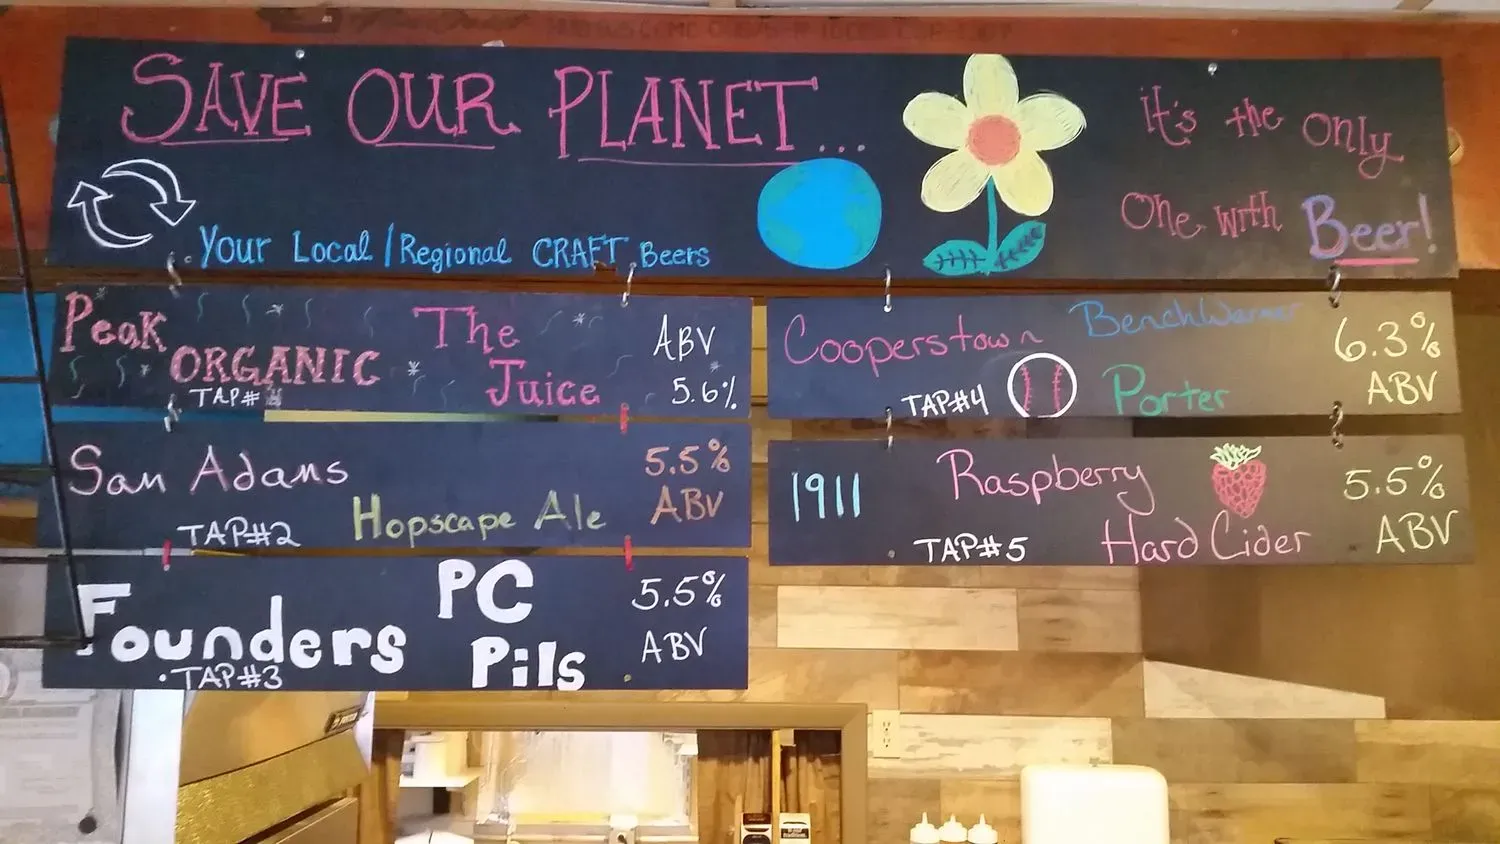 SAVE OUR PLANET...
it's the only
One with Beer!
Your Local / Regional CRAFT Beers
Peak
ORGANIC
TAP#
The
Juice
ABV
5.6%
San Adams
Hopscape Ale
TAP#2
5.5%
ABV
Founders
TAP#3
PC
Pils
5.5%
ABV
Cooperstown
BenchWarmer
Porter
TAP#4
6.3%
ABV
1911
Raspberry
Hard Cider
TAP#5
5.5%
ABV